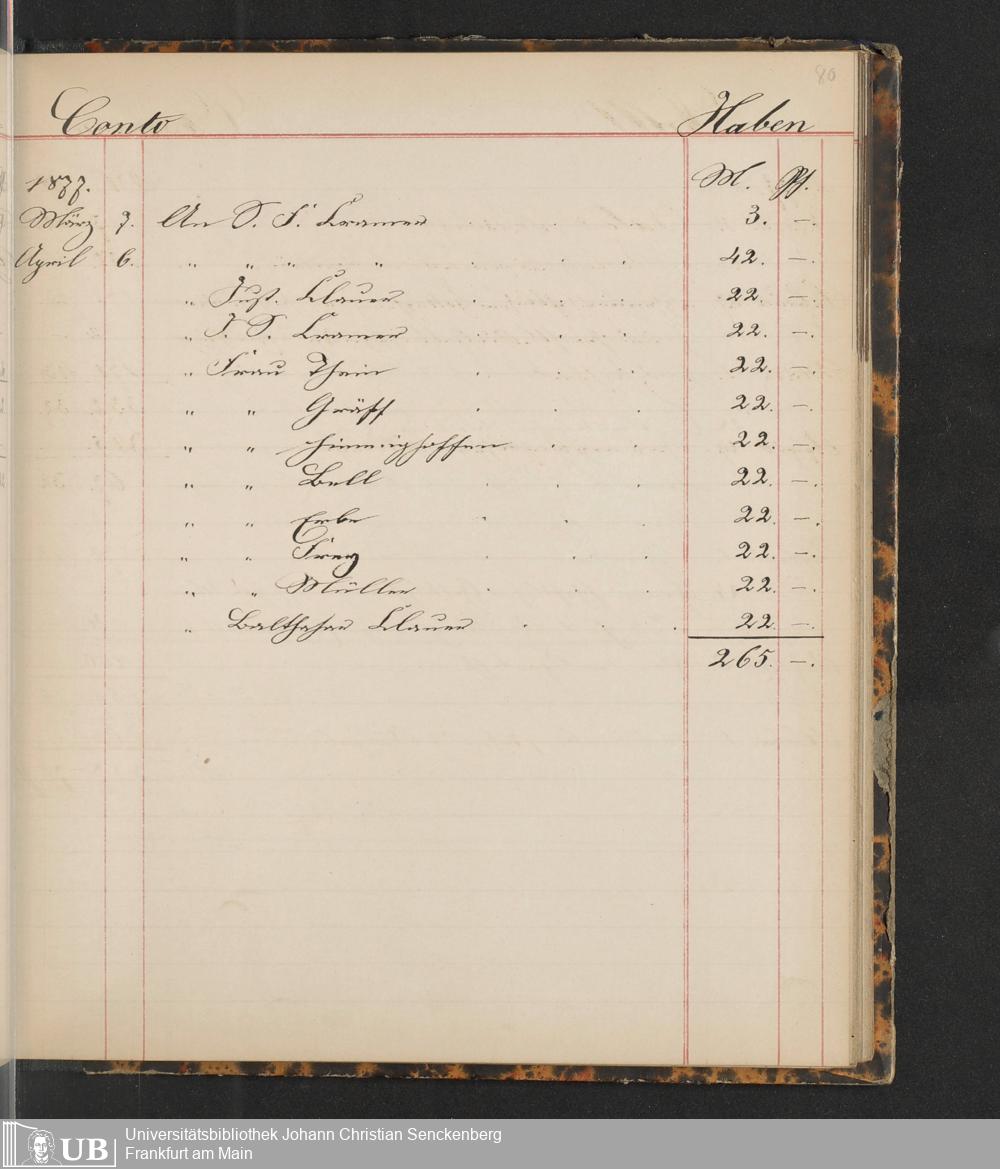 80
Conto Haben
1877. M. Pf.
März 7. An S. F. Cramer . . 3. —.
April 6. " " " " . . . 42. —.
" Just. Clauer . . . 22. —.
" J. S. Cramer . . . 22. —.
" Frau Thein . . . 22. —.
" " Gräff . . . 22. —.
" " . . 22. —.
" " Bell . . . 22. —.
" " Erbe . . . 22. —.
" " Frey . . . 22. —.
" " Müller . . . 22. —.
" Balthasar Clauer . . . 22. —.
265. —.
UB Universitätsbibliothek Johann Christian Senckenberg
Frankfurt am Main